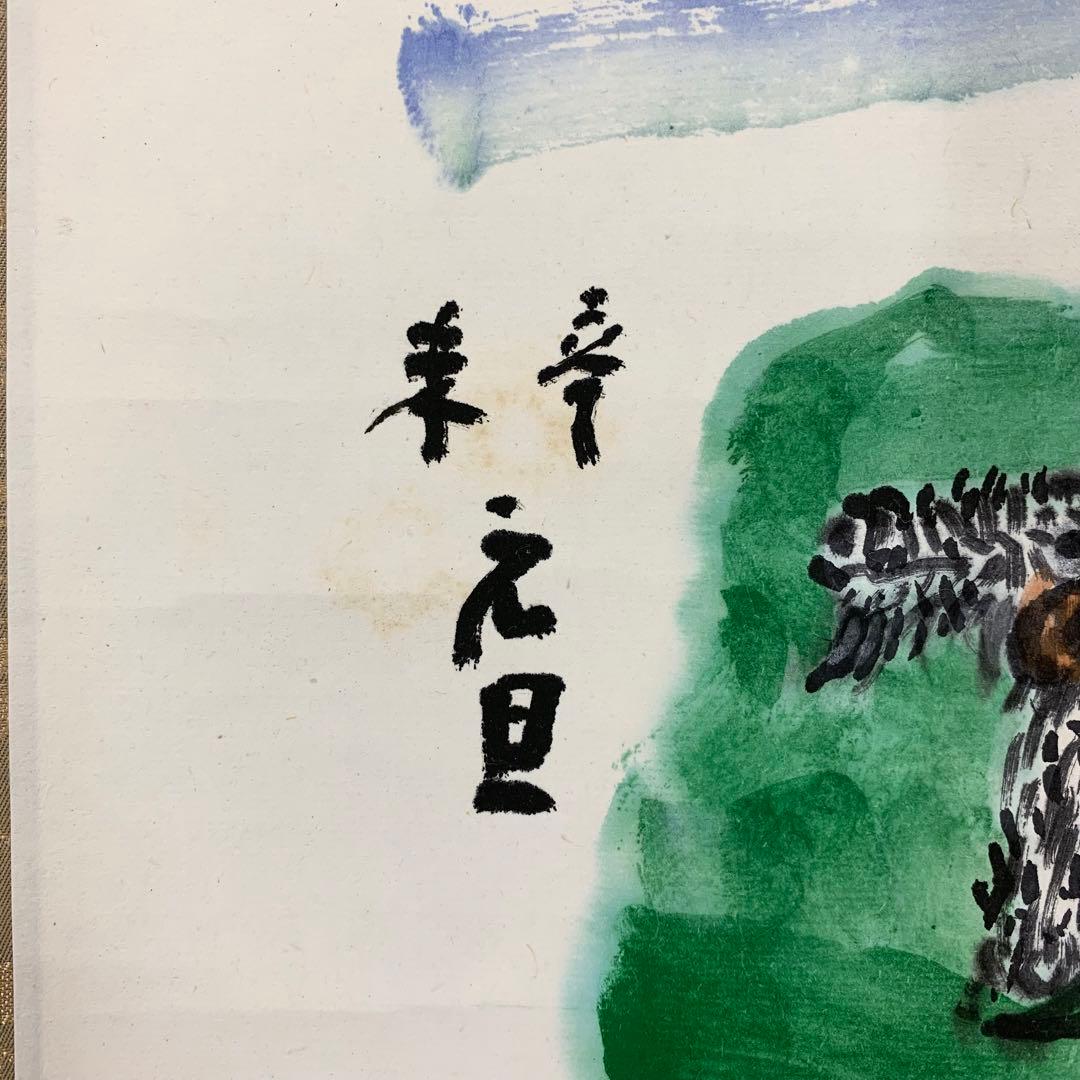 辛未
元旦